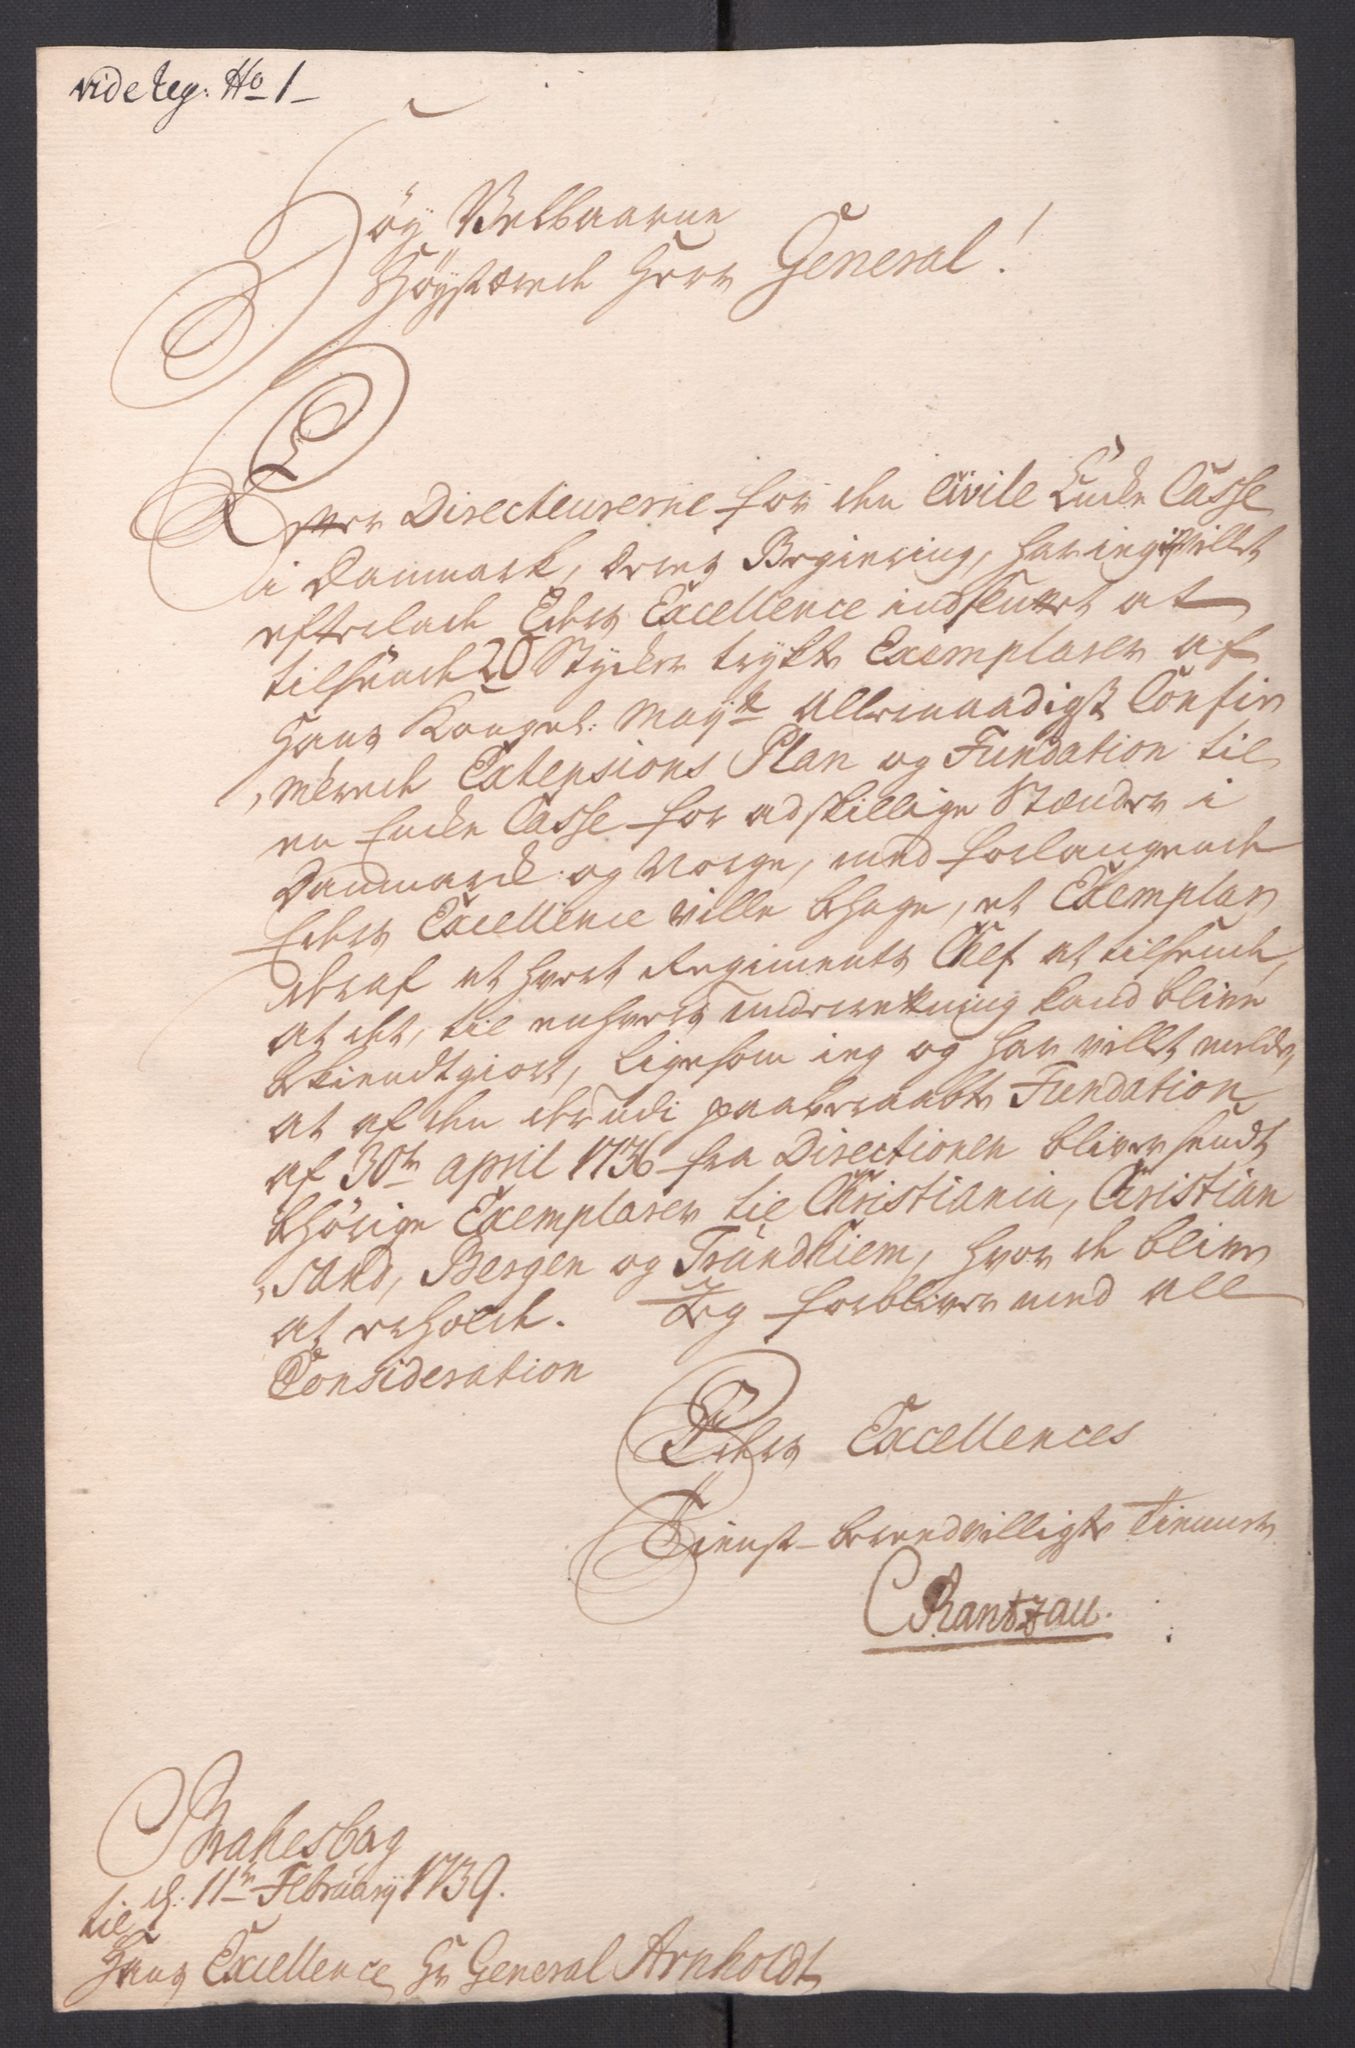 vide Reg: No 1
Høy Velbaarne
Høystærede Herr General!
Efter Directeurerne for den Civile Encke Casse
i Danmark, deres Begiering, har ieg ej villet
efterlade Eders Excellence indsluttet at
tilsende 20 Stycker trykte Exemplarer af
Hans Kongel: Mayts allernaadigst Confir
merede Extensions Plan og Fundation til
en Encke Casse for adskillige Stænder i
Danmark og Norge, med forlangende
Eders Excellence ville behage, et Exemplar
deraf et hvert Regiments Chef at tilsende,
at det, til enhvers underretning kand blive
bekiendtgiort, ligesom ieg og har villet melde,
at af den derudi paaberaabte Fundation
af 30te april 1736 fra Directionen bliver sendt
behörige Exemplarer til Christiania, Christian
sand, Bergen og Trundhiem, hvor de bliver
at erholde. Jeg forbliver med all
Consideration
Eders Excellences
Tienst-beredvilligste Tienner
CRantzau.
Brahesbog
d: 11te February 1739.
til
Hans Excellence Hr General Arnholdt